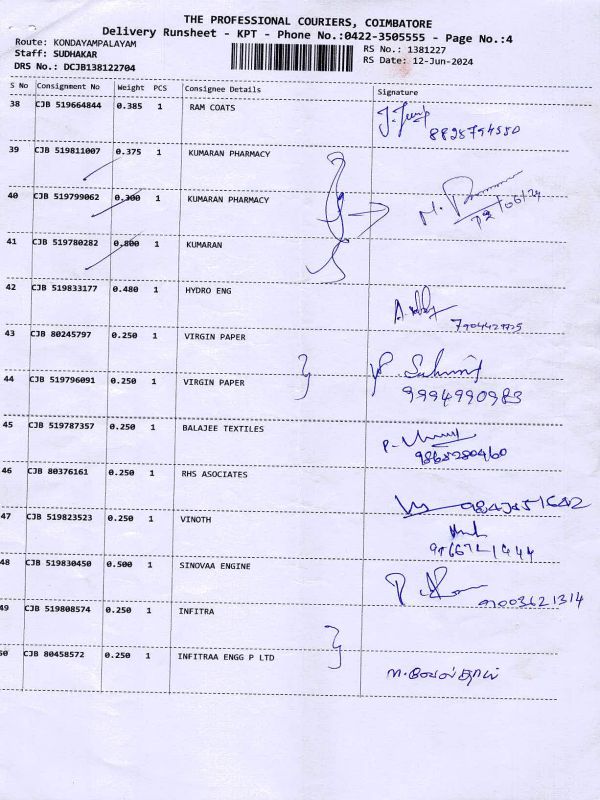 THE PROFESSIONAL COURIERS, COIMBATORE
Delivery Runsheet - KPT - Phone No.:0422-3505555 - Page No.:4
Route: KONDAYAMPALAYAM RS No.: 1381227
Staff: SUDHAKAR RS Date: 12-Jun-2024
DRS No.: DCJB138122704
S No Consignment No Weight PCS Consignee Details Signature
38 CJB 519664844 0.385 1 RAM COATS
39 CJB 519811007 0.375 1 KUMARAN PHARMACY
40 CJB 519799062 0.300 1 KUMARAN PHARMACY
12/06/24
41 CJB 519780282 0.800 1 KUMARAN
42 CJB 519833177 0.480 1 HYDRO ENG
43 CJB 80245797 0.250 1 VIRGIN PAPER
44 CJB 519796091 0.250 1 VIRGIN PAPER
9994990983
45 CJB 519787357 0.250 1 BALAJEE TEXTILES
46 CJB 80376161 0.250 1 RHS ASOCIATES
47 CJB 519823523 0.250 1 VINOTH
48 CJB 519830450 0.500 1 SINOVAA ENGINE
49 CJB 519808574 0.250 1 INFITRA
50 CJB 80458572 0.250 1 INFITRAA ENGG P LTD